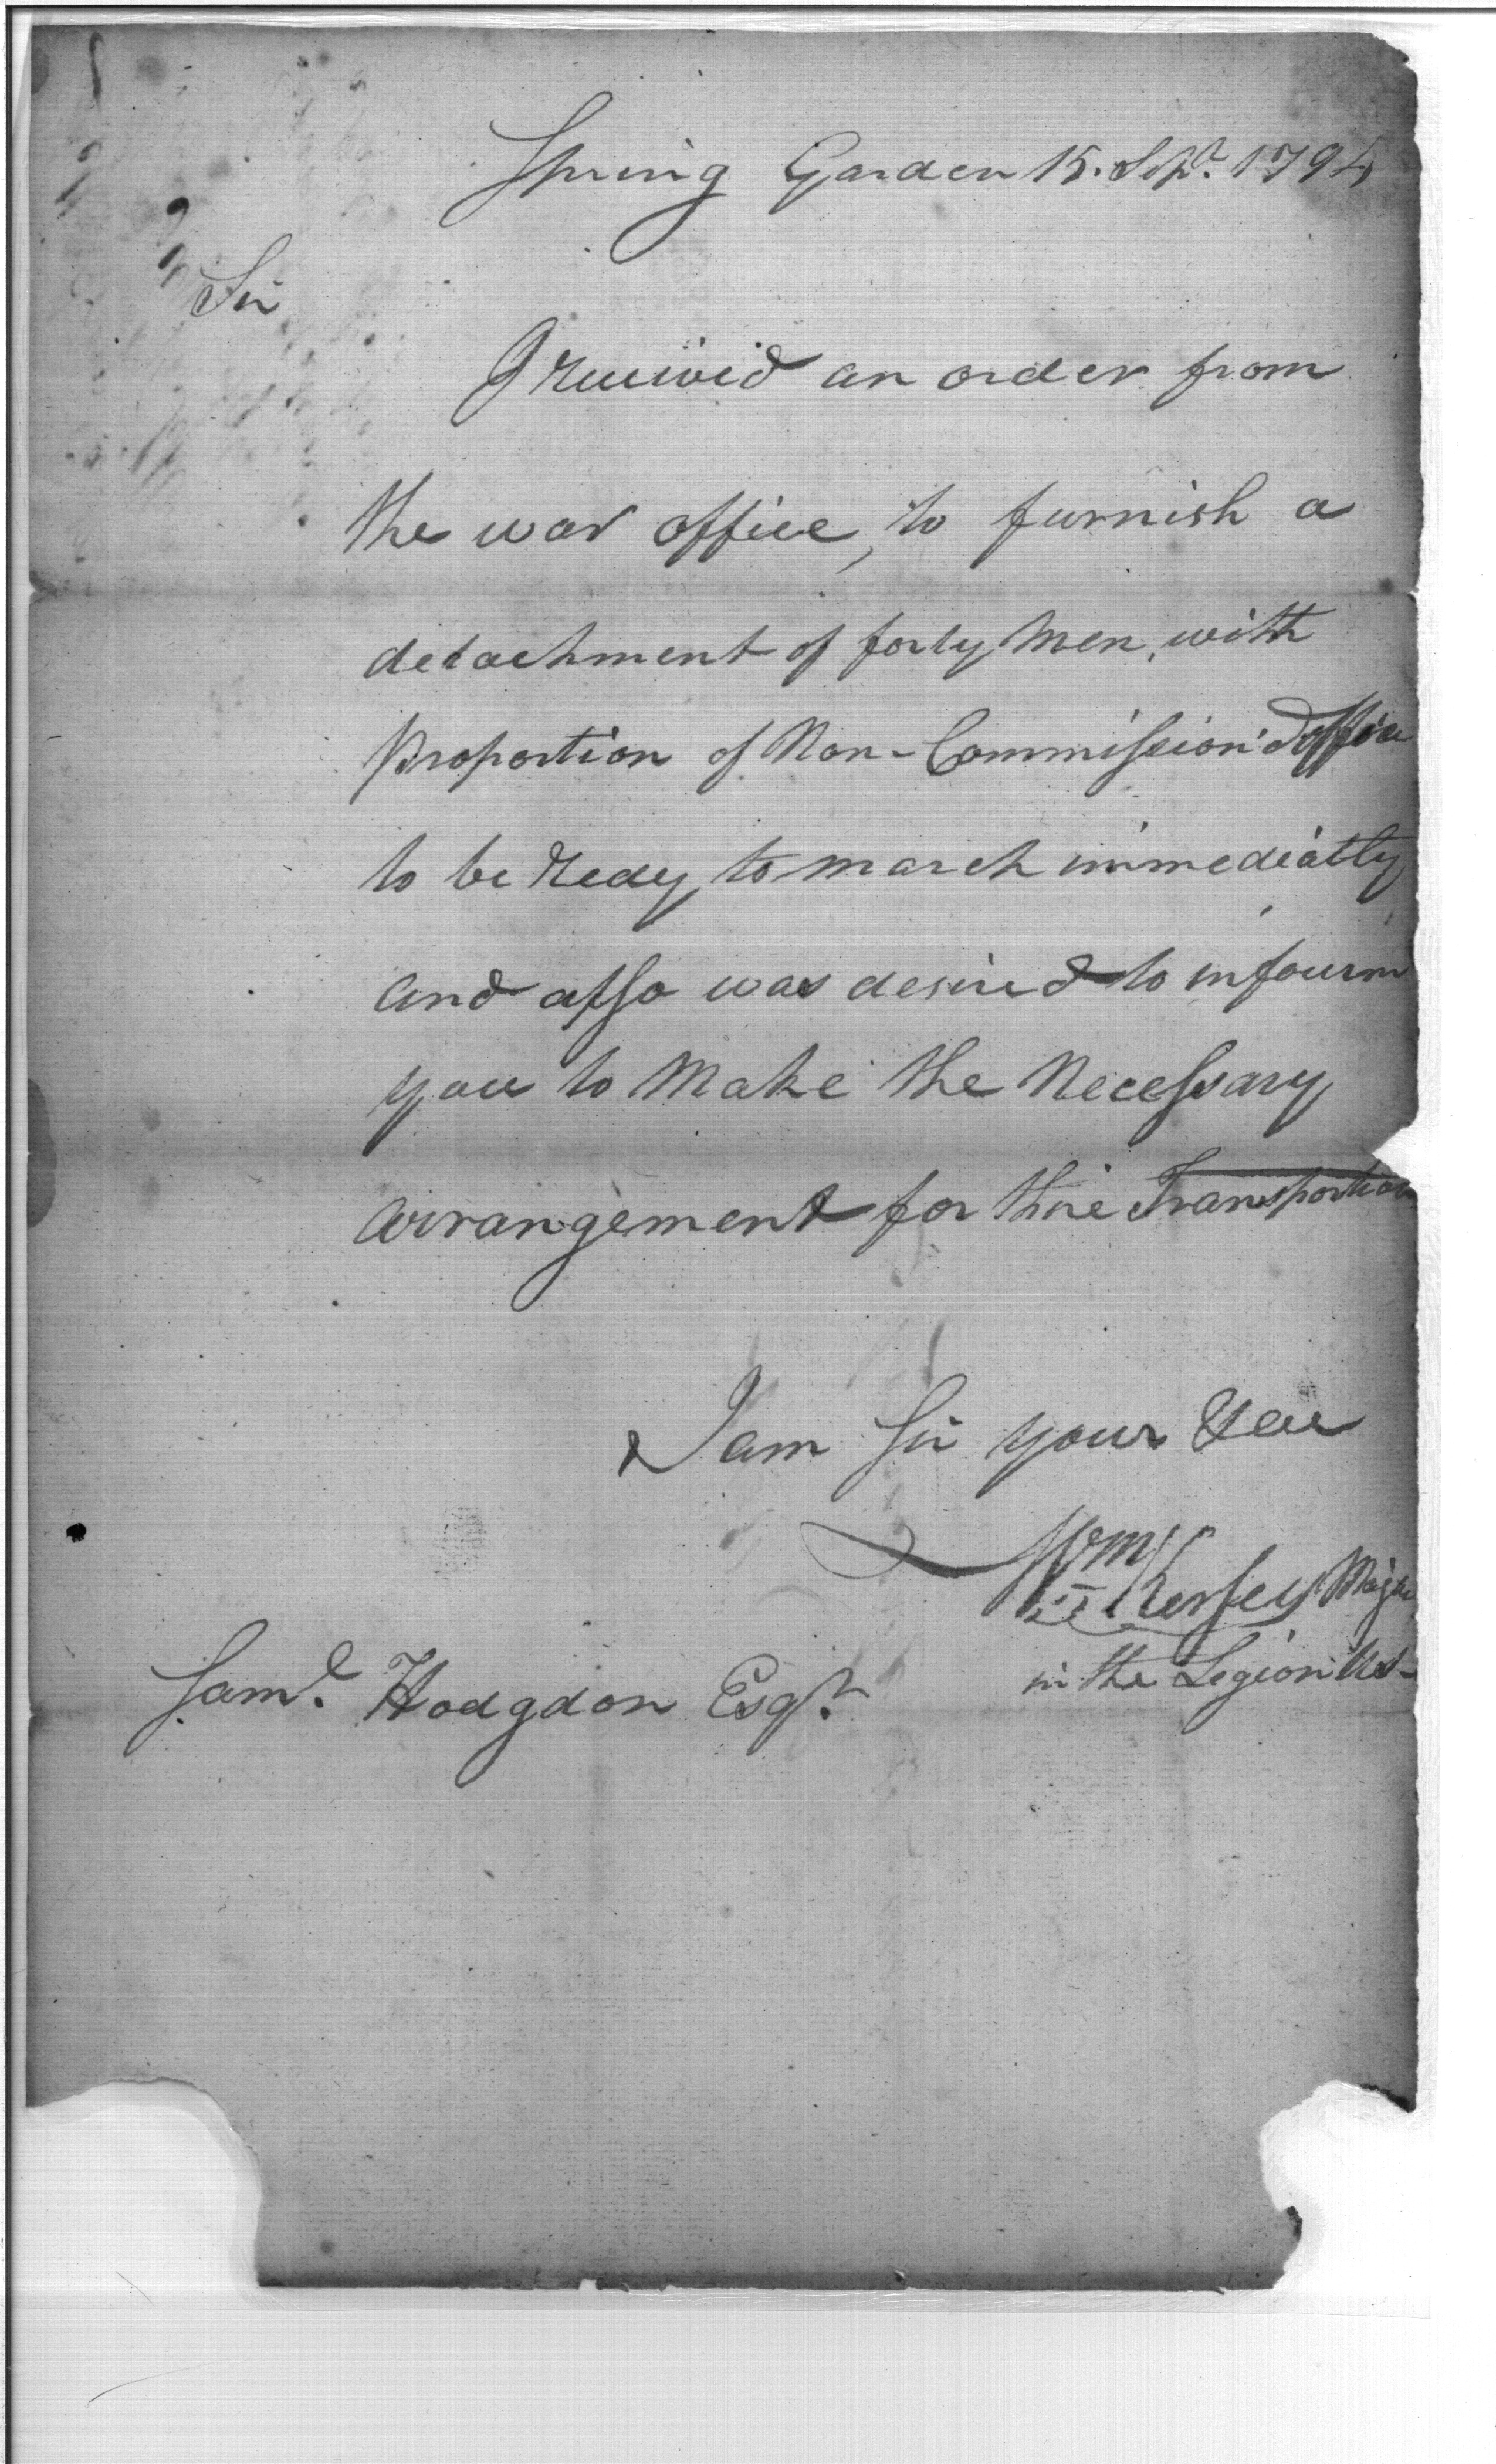 Spring Garden 15. Sepr. 1794
Sir
I receivid an order from
the war office, to furnish a
detachment of forty Men, with
Proportion of Non-Commission'd office
to be Redy to march immediatly
and also was desired to infourm
you to Make the Necessary
arrangement for thire Transportion
I am Sir your &ce
Wm Kersey Major
in the Legion US-
Saml. Hodgdon Esqr.